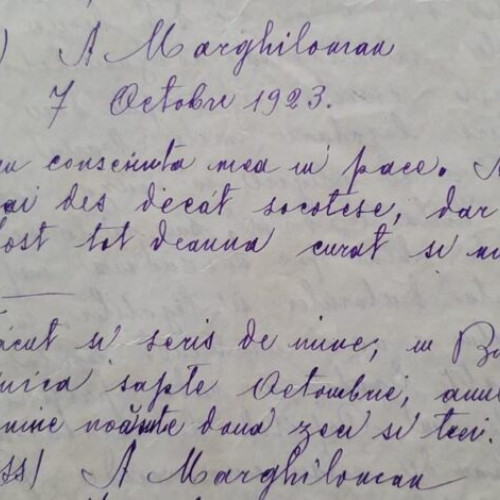 ) A Marghiloman
7 Octobre 1923.
cu consciinta mea in pace. A
ai des decât socotese, dar
fost tot deauna curat si
făcut si scris de mine; in Bu
sapte Octombrie, anul
mine noănte doua zeci si trei.
ss) A Marghiloman